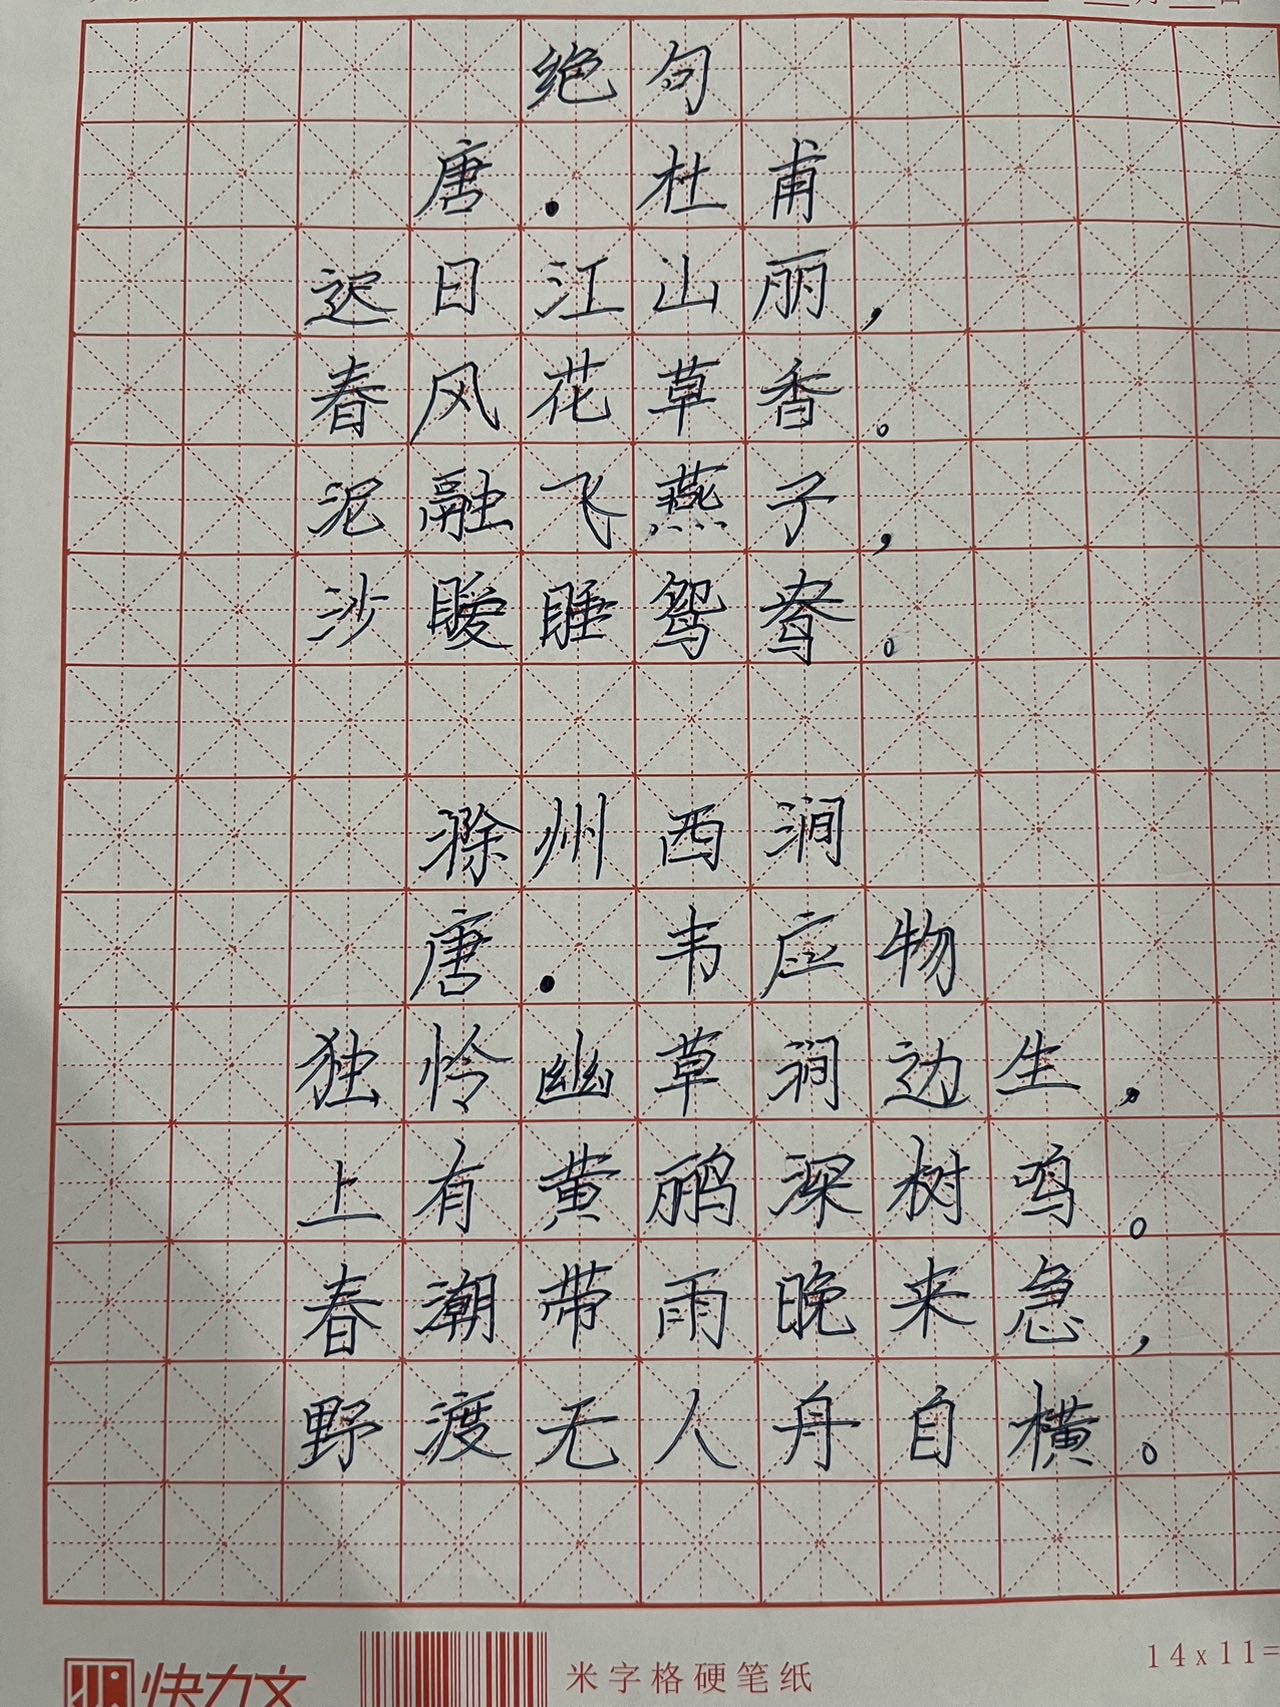 绝句
唐.杜甫
迟日江山丽,
春风花草香。
泥融飞燕子,
沙暖睡鸳鸯。
滁州西涧
唐.韦应物
独怜幽草涧边生,
上有黄鹂深树鸣。
春潮带雨晚来急,
野渡无人舟自横。
快力文
米字格硬笔纸
14x11=